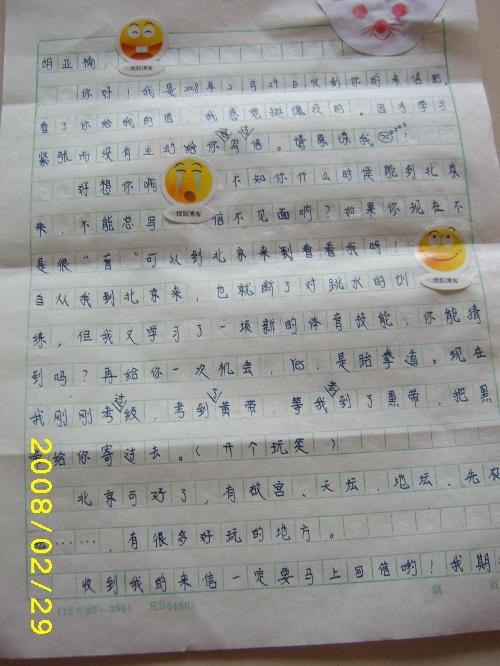 胡亚楠:
你好!我是2008年2月29日收到你的来信的,
看了你给我的信,我感觉挺愧疚的。因为学习
紧张而没有主动给你写信。请原谅我!
好想你啊 不知你什么时候能到北京
来,不能总写 信不见面哟?如果你现在不
是很“盲”可以到北京来到看看我呀!
自从我到北京来,也就断了对跳水的训
练,但我又学习了一项新的体育技能,你能猜
到吗?再给你一次机会,Yes,是跆拳道。现在
我刚刚考过级,考到了黄带,等我考到了黑带,把黑
给你寄过去。(开个玩笑)
北京可好了,有故宫、天坛、地坛、先农
……,有很多好玩的地方。
收到我的来信一定要马上回信哟!我期
(15×20=300) EB04903 第 页
搜狐博客
搜狐博客
搜狐博客
2008/02/29